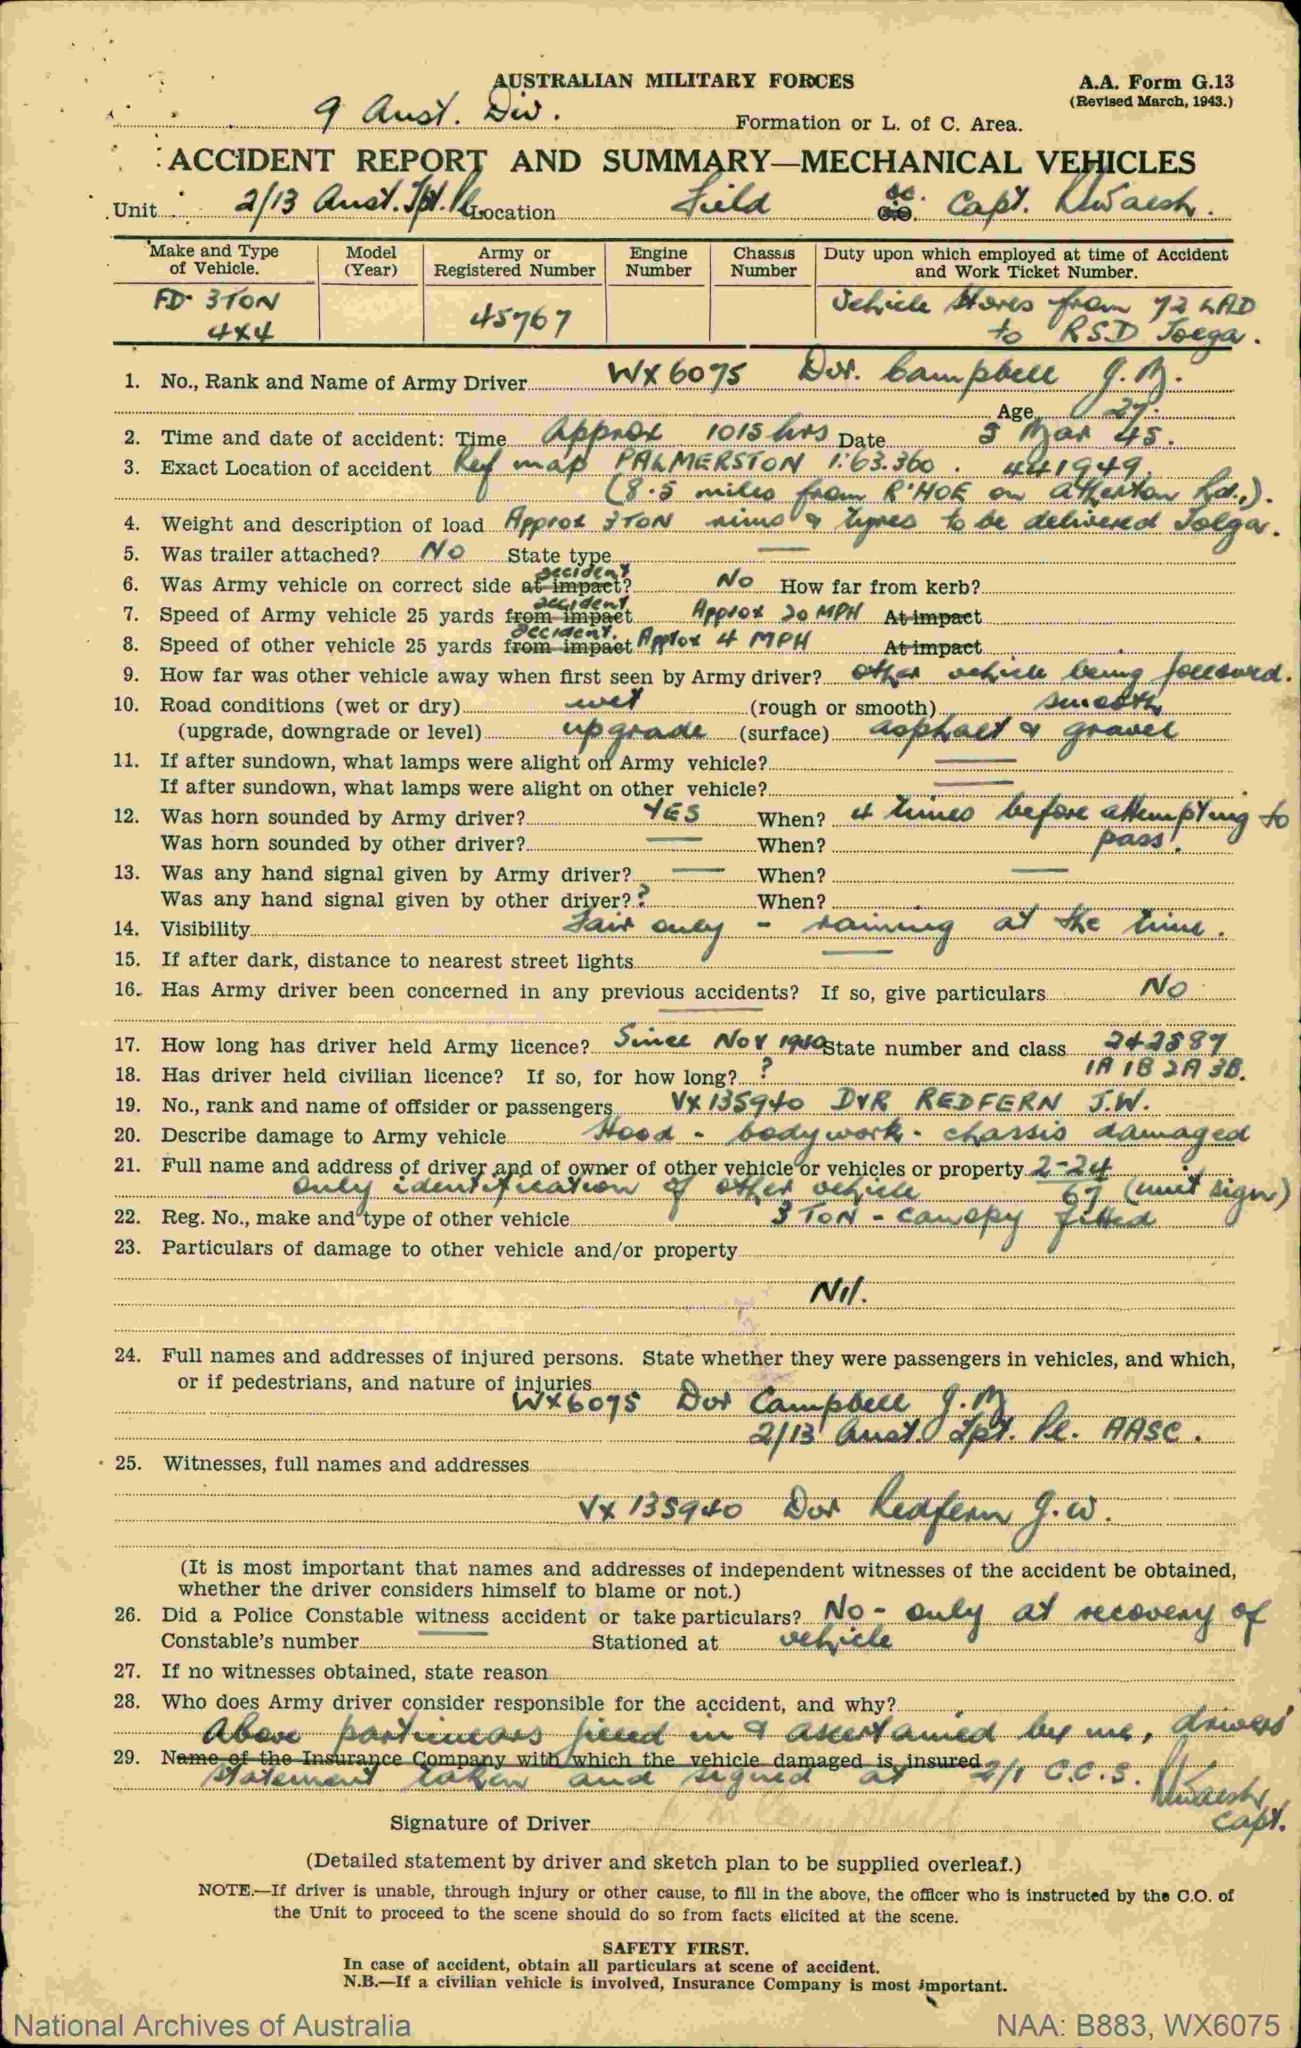 AUSTRALIAN MILITARY FORCES
A.A. Form G.13
(Revised March, 1943.)
9 Aust. Div. Formation or L. of C. Area.
ACCIDENT REPORT AND SUMMARY—MECHANICAL VEHICLES
Unit 2/13 Aust. Tpt. Pl Location Field Capt.
Make and Type of Vehicle. Model (Year) Army or Registered Number Engine Number Chassis Number Duty upon which employed at time of Accident and Work Ticket Number.
FD. 3TON 4x4 45767 Vehicle Stores from 72 LAD to RSD Tolga.
1. No., Rank and Name of Army Driver WX6075 Dvr. Campbell J.M.
Age 27.
2. Time and date of accident: Time Approx 1015 hrs Date 5 Mar 45.
3. Exact Location of accident Ref map PALMERSTON 1:63.360. 441949.
(8.5 miles from R'HOE on Atherton Rd.,).
4. Weight and description of load Approx 3 TON rims & tyres to be delivered Tolga.
5. Was trailer attached? No State type —
6. Was Army vehicle on correct side at impact? accident No How far from kerb?
7. Speed of Army vehicle 25 yards from impact accident Approx 20 MPH At impact
8. Speed of other vehicle 25 yards from impact accident. Approx 4 MPH At impact
9. How far was other vehicle away when first seen by Army driver? other vehicle being followed.
10. Road conditions (wet or dry) wet (rough or smooth) smooth
(upgrade, downgrade or level) upgrade (surface) asphalt & gravel
11. If after sundown, what lamps were alight on Army vehicle? —
If after sundown, what lamps were alight on other vehicle? —
12. Was horn sounded by Army driver? YES When? 4 times before attempting to pass.
Was horn sounded by other driver? — When?
13. Was any hand signal given by Army driver? — When? —
Was any hand signal given by other driver? ? When?
14. Visibility Fair only - raining at the time.
15. If after dark, distance to nearest street lights —
16. Has Army driver been concerned in any previous accidents? If so, give particulars No
17. How long has driver held Army licence? Since Nov 1940 State number and class 242587
1A 1B 2A 3B.
18. Has driver held civilian licence? If so, for how long? ?
19. No., rank and name of offsider or passengers VX135940 DVR REDFERN J.W.
20. Describe damage to Army vehicle Hood - bodywork - chassis damaged
21. Full name and address of driver and of owner of other vehicle or vehicles or property 2-24
only identification of other vehicle 67 (unit sign)
22. Reg. No., make and type of other vehicle 3 TON - canopy fitted
23. Particulars of damage to other vehicle and/or property
Nil.
24. Full names and addresses of injured persons. State whether they were passengers in vehicles, and which,
or if pedestrians, and nature of injuries
WX6075 Dvr Campbell J.M
2/13 Aust. Tpt. Pl. AASC.
25. Witnesses, full names and addresses
VX135940 Dvr Redfern J.W.
(It is most important that names and addresses of independent witnesses of the accident be obtained,
whether the driver considers himself to blame or not.)
26. Did a Police Constable witness accident or take particulars? No - only at recovery of
Constable's number — Stationed at vehicle
27. If no witnesses obtained, state reason
28. Who does Army driver consider responsible for the accident, and why?
Above particulars filled in & ascertained by me, drivers'
29. Name of the Insurance Company with which the vehicle damaged is insured
statement taken and signed at 2/1 C.C.S.
Capt.
Signature of Driver
(Detailed statement by driver and sketch plan to be supplied overleaf.)
NOTE.—If driver is unable, through injury or other cause, to fill in the above, the officer who is instructed by the C.O. of
the Unit to proceed to the scene should do so from facts elicited at the scene.
SAFETY FIRST.
In case of accident, obtain all particulars at scene of accident.
N.B.—If a civilian vehicle is involved, Insurance Company is most important.
National Archives of Australia
NAA: B883, WX6075